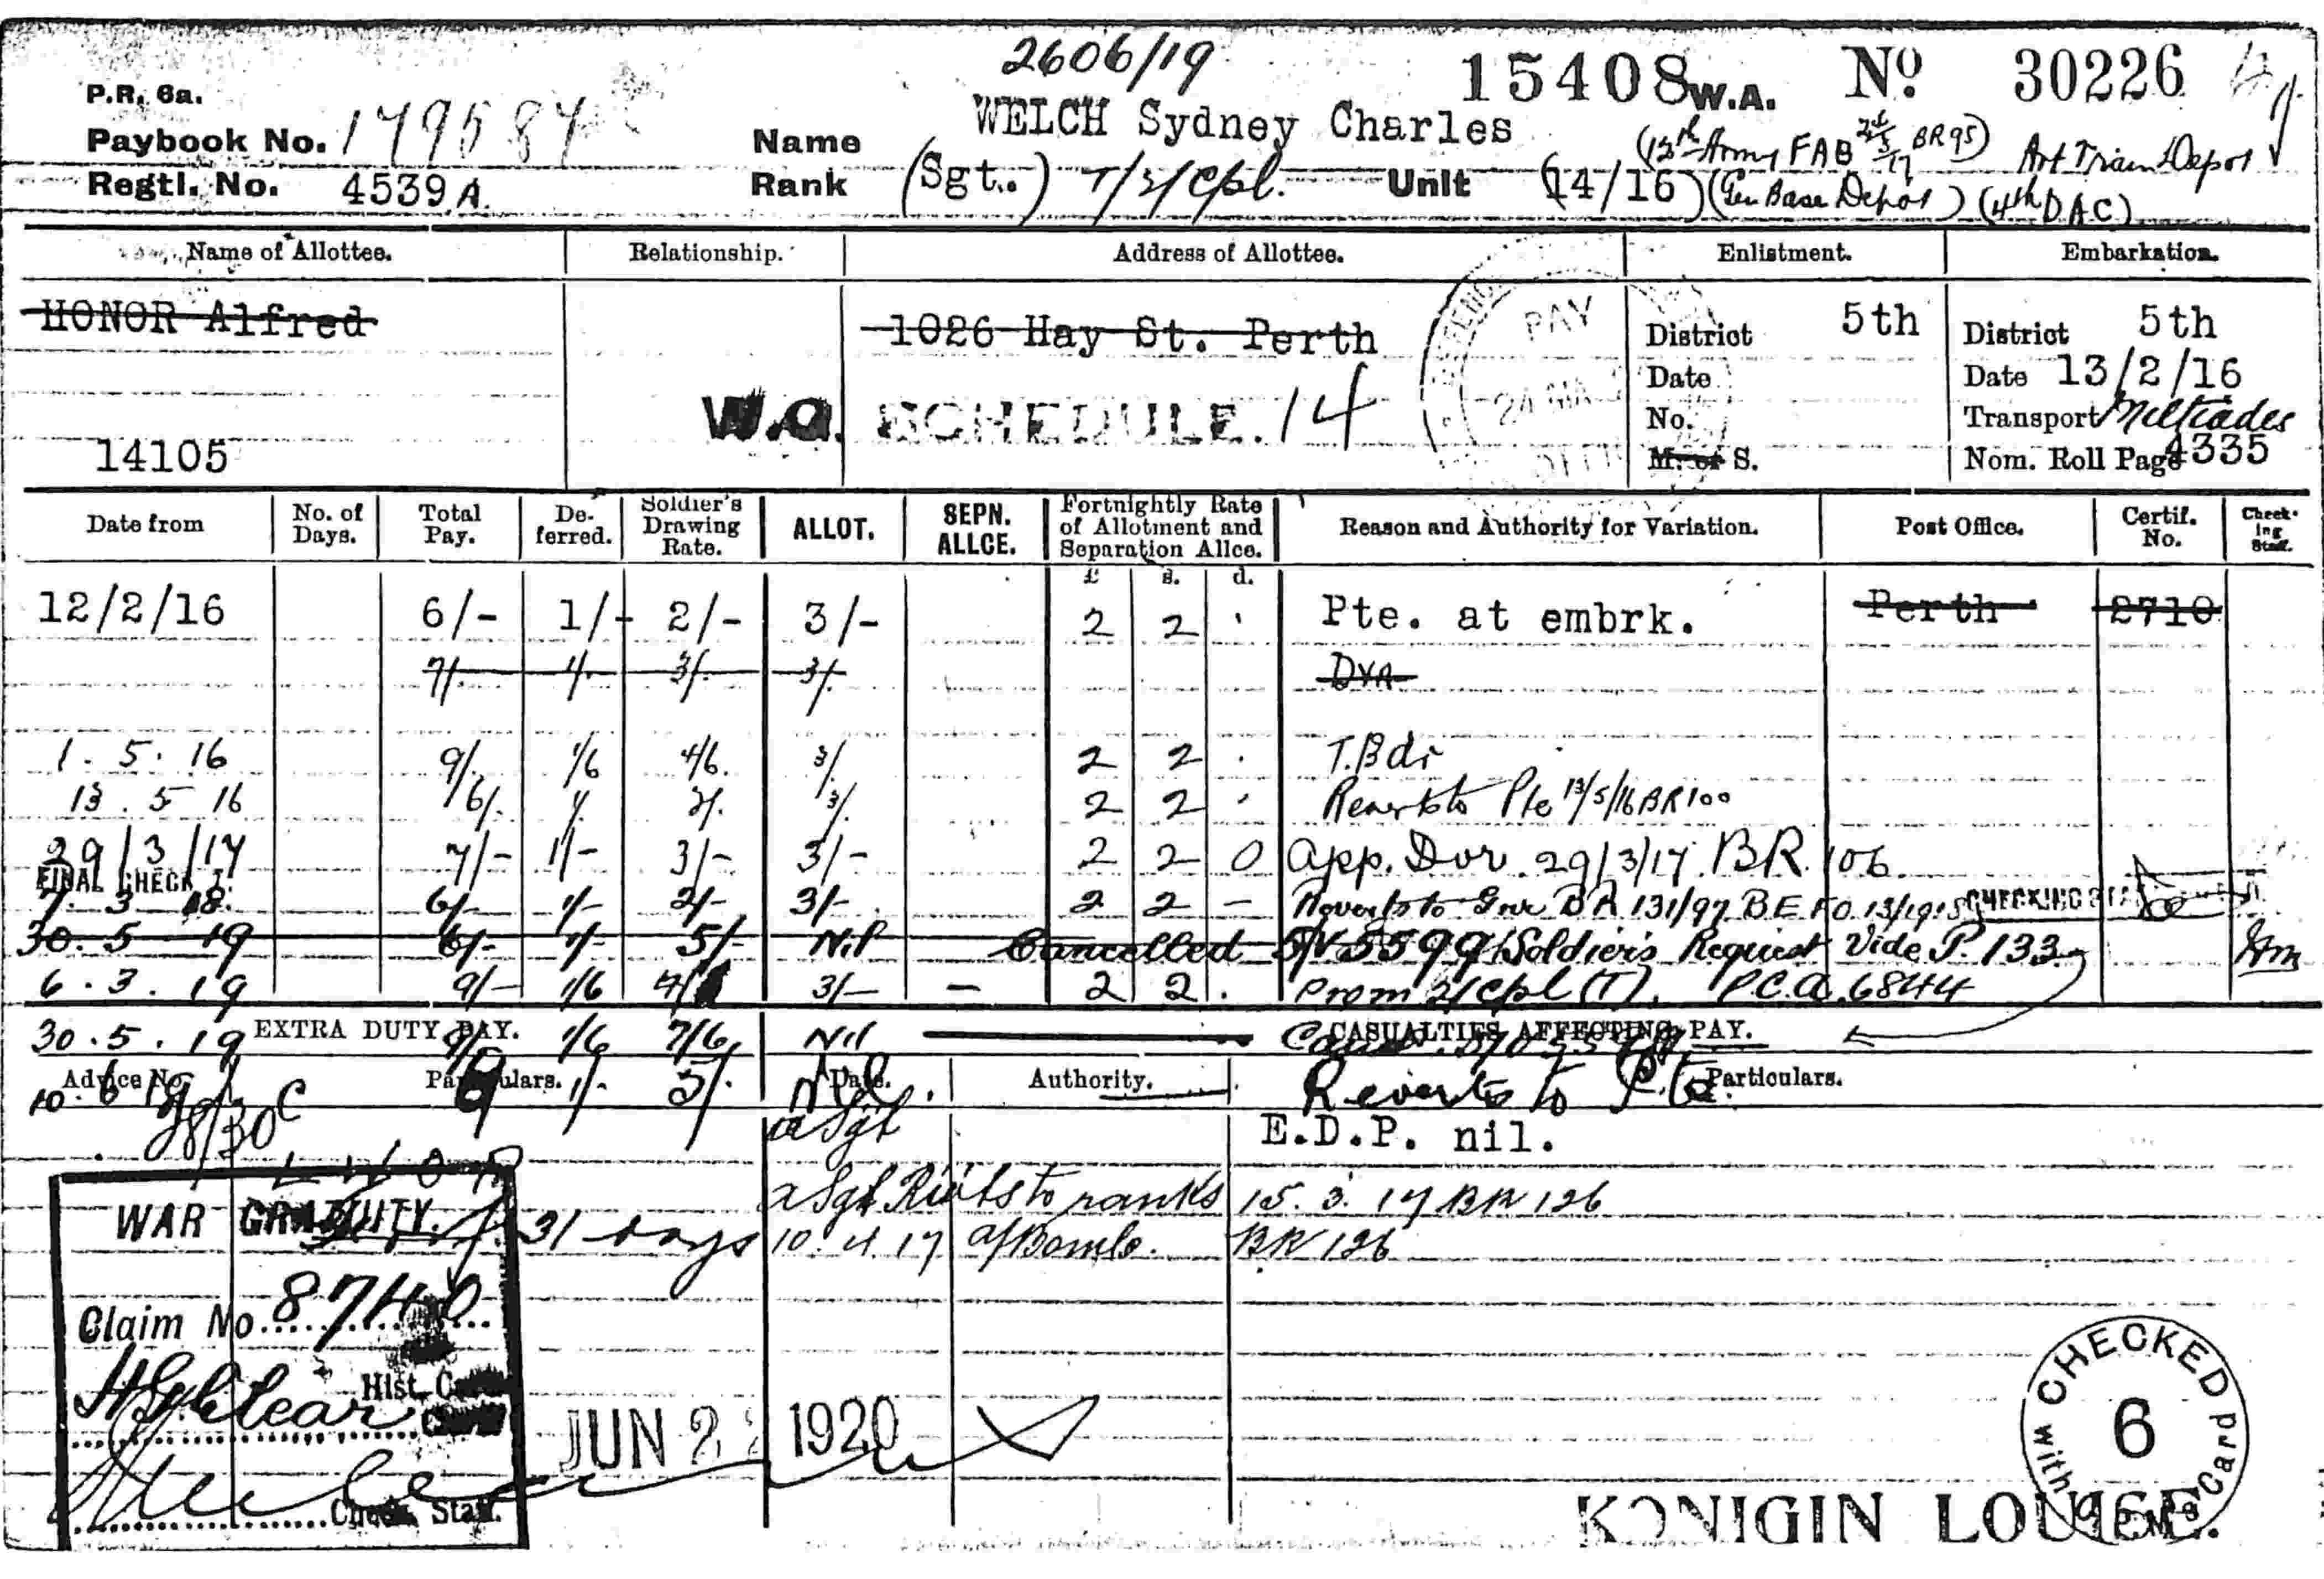 2606/19
15408 W.A. Nº 30226
P.R. 6a.
Paybook No. 179587
Name WELCH Sydney Charles
(12th Army FAB BR95) Art Train Depot
Regtl. No. 4539A.
Rank (Sgt.) T/2/Cpl. Unit (14/16) (Gen Base Depot) (4th DAC)
Name of Allottee. Relationship. Address of Allottee. Enlistment. Embarkation.
HONOR Alfred 1026 Hay St. Perth PAY District 5th District 5th
Date Date 13/2/16
W.A. SCHEDULE. 14 No. Transport Miltiades
14105 M. or S. Nom. Roll Page 4335
Date from No. of Days. Total Pay. Deferred. Soldier's Drawing Rate. ALLOT. SEPN. ALLCE. Fortnightly Rate of Allotment and Separation Allce. Reason and Authority for Variation. Post Office. Certif. No. Checking Staff.
£ s. d.
12/2/16 6/- 1/- 2/- 3/- 2 2 . Pte. at embrk. Perth 2710
7/- 1/- 3/- 3/- Dvr
1.5.16 9/- 1/6 4/6. 3/- 2 2 . T.Bdr
13.5.16 6/- 1/- 2/- 3/- 2 2 . Reverts to Pte 13/5/16 BR100
29/3/17 7/- 1/- 3/- 3/- 2 2 0 App. Dvr. 29/3/17. BR. 106.
FINAL CHECK
7.3.18. 6/- 1/- 2/- 3/- 2 2 - Reverts to Gnr BR 131/97 B.E.F.O. CHECKING
30.5.19 6/- 1/- 5/- Nil Cancelled S/V 5599 Soldiers Request Vide P. 133
6.3.19 9/- 1/6 3/- - 2 2 . Prom 2/Cpl (T). P.C.A. 6844
EXTRA DUTY PAY. CASUALTIES AFFECTING PAY.
30.5.19 9/- 1/6 7/6 Nil
Advice No. Particulars. Date. Authority. Particulars.
10.6.19 1/- 5/- Nil. Reverts to Pte.
a Sgt E.D.P. nil.
a Sgt Rvts to ranks 15.3.17 BR 126
31 days 10.4.17 a/Bomb. BR 126
WAR GRATUITY.
Claim No. 8740
Hist. Card
JUN 2 1920
Check. Staff.
CHECKED with Card 6
KONIGIN LOUISE.